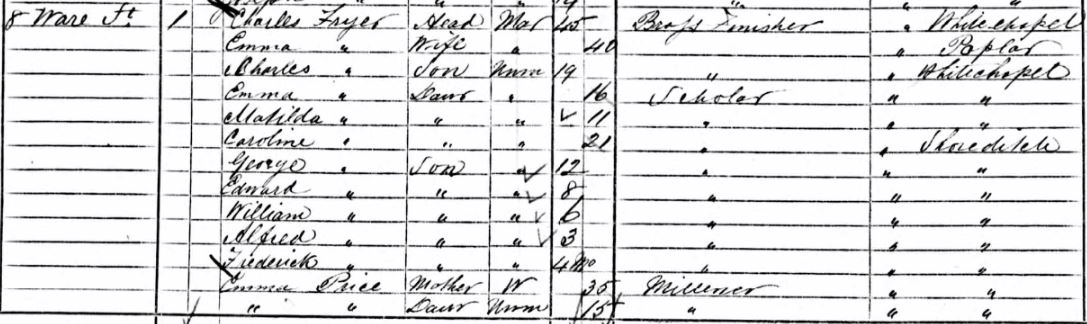 8 Ware St 1 Charles Fryer Head Mar 45 Brass Finisher " Whitechapel
Emma " Wife " 40 " Poplar
Charles " Son Unm 19 " " Whitechapel
Emma " Daur " 16 Scholar " "
Matilda " " " 11 " " "
Caroline " " " 21 " " Shoreditch
George " Son " 12 " " "
Edward " " " 8 " " "
William " " " 6 " " "
Alfred " " " 3 " " "
Frederick " " " 4 Mo " " "
Emma Price Mother W 35 Milliner " "
" " Daur Unm 15 " " "